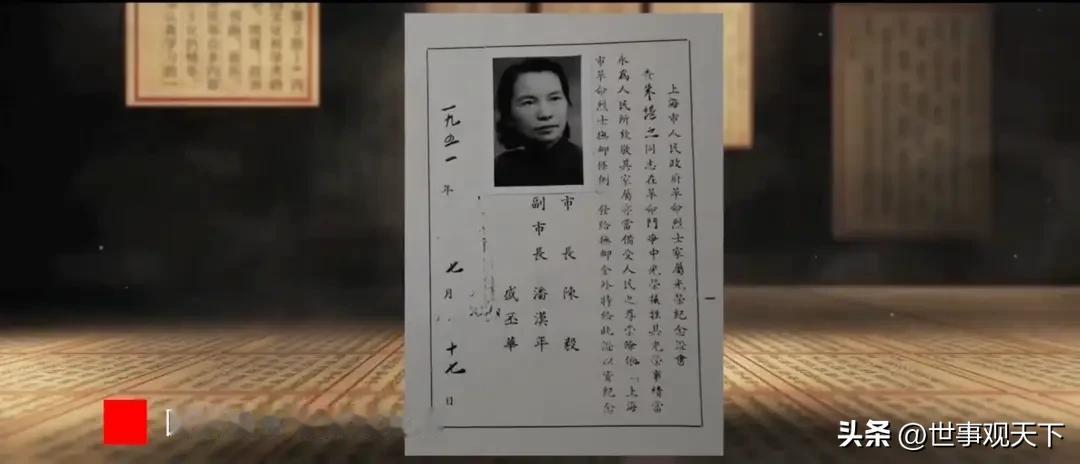 上海市人民政府革命烈士家屬光榮紀念證書
查朱諶之同志在革命鬥爭中光榮犧牲其光榮事蹟當
永為人民所欽敬其家屬亦當備受人民之尊崇除依「上海
市革命烈士撫卹條例 發給撫卹金外特給此證以資紀念
市長 陳毅
副市長 潘漢年
盛丕華
一九五一年七月十七日
头条 @世事观天下